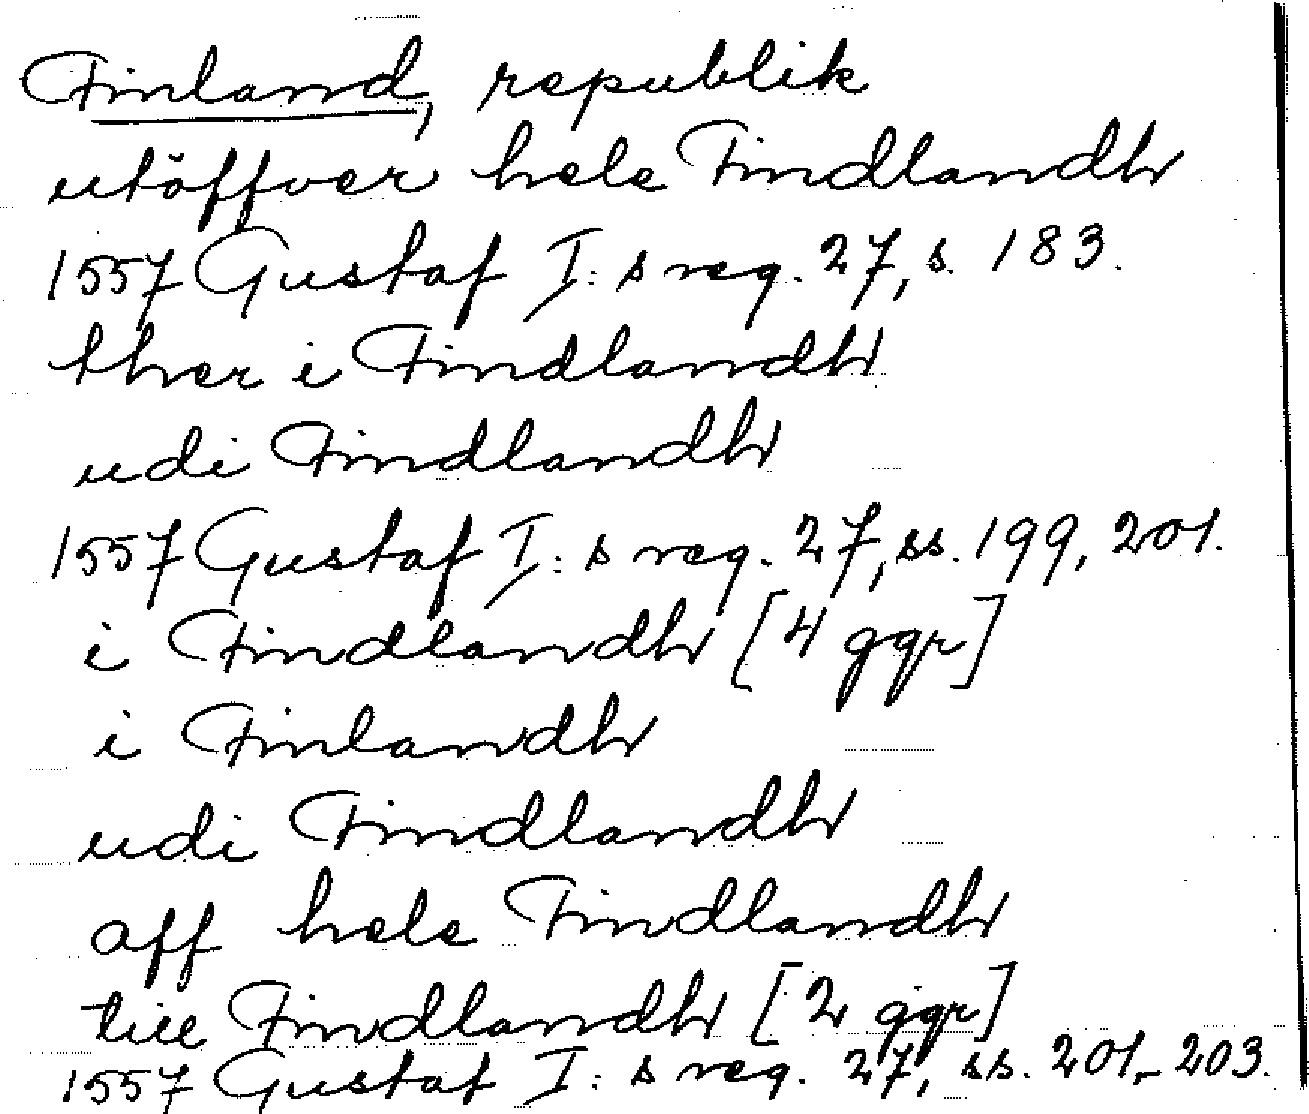 Finland, republik
utöffver hele Findlandh
1557 Gustaf I:s reg. 27, s. 183.
ther i Findlandh
udi Findlandh
1557 Gustaf I:s reg. 27, ss. 199, 201.
i Findlandh [4 ggr]
i Finlandh
udi Findlandh
aff hele Findlandh
till Findlandh [2 ggr]
1557 Gustaf I:s reg. 27, ss. 201-203.